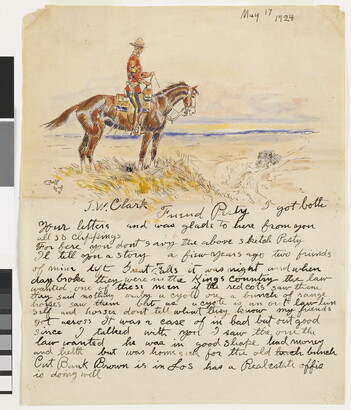 May 17
1924
J. W. Clark
Friend Pesty I got both
your letters and was glad to here from you
all so clippings
For fear you dont savvy the above sketch Pesty
Il tell you a story a few years ago two friends
of mine left Great Falls it was night and when
day broke they were in the Kings Country the law
wanted one of these men if the red cots saw them
they said nothing only a cyote ore a bunch of range
horses saw them but a cyote is an out law him
self and horses dont tell what they know my friends
got across It was a case of in bad but out good
since I talked with you I saw the one the
law wanted he was in good shape had money
and helth but was home sick for the old bunch
Cut Bank Brown is in Los has a Real estate offis
is doing well